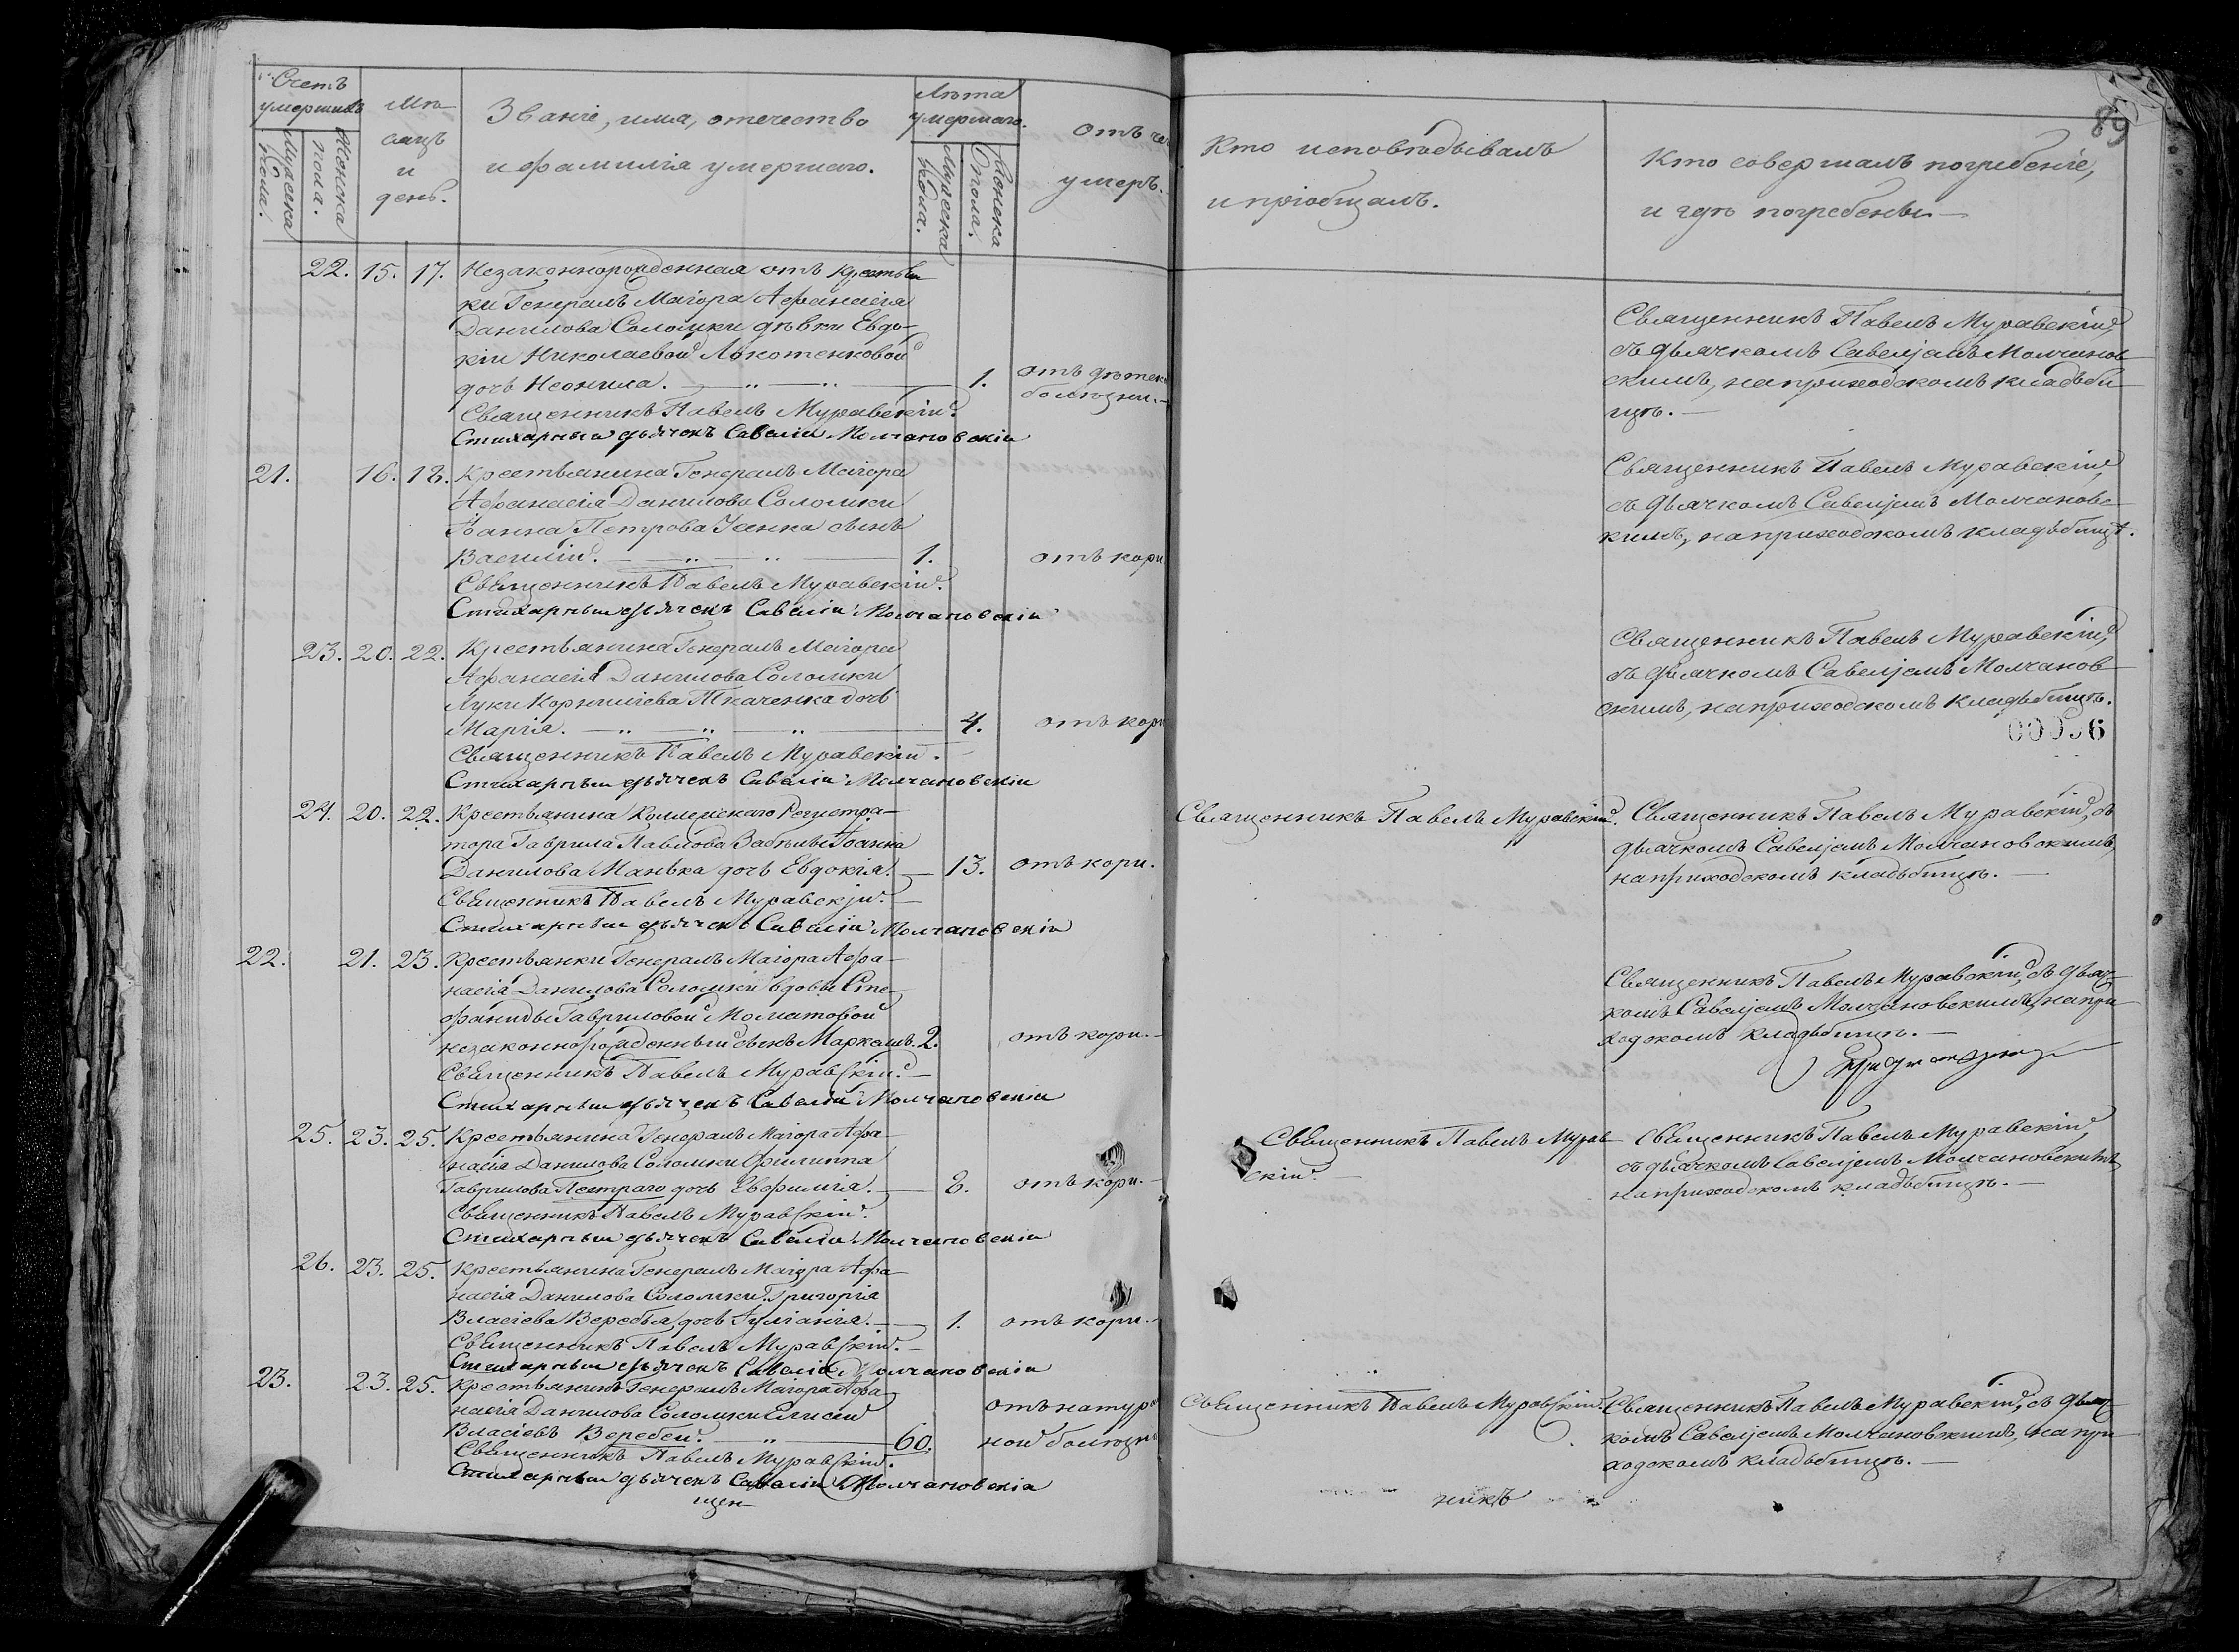 Счетъ умершихъ
Мужеска пола.
Женска пола.
Мѣ-
сяцъ
и
день.
Званіе, имя, отечество
и фамилія умершаго.
Лѣта умершаго.
Мужеска пола.
Женска пола.
Отъ че
умеръ.
Кто исповѣдывалъ
и пріобщалъ.
Кто совершалъ погребеніе,
и гдѣ погребены.—
89
22. 15. 17. Незаконнорожденная отъ крестьян
ки Генералъ Маіора Афанасія
Данилова Соломки дѣвки Евдо-
кіи Николаевой Локотенковой
дочь Неонила. 1. отъ дѣтск
болѣзни.—
Священникъ Павелъ Муравскій.
Стихарный дьячекъ Савелій Молчановскій
Священникъ Павелъ Муравскій,
съ дьячкомъ Савеліемъ Молчанов
скимъ, на приходскомъ кладьби
щѣ.—
21. 16. 18. Крестьянина Генералъ Маіора
Афанасія Данилова Соломки
Іоанна Петрова Усенка сынъ
Василій. 1. отъ кори
Священникъ Павелъ Муравскій.
Стихарный дьячекъ Савелій Молчановскій
Священникъ Павелъ Муравскій,
съ дьячкомъ Савеліемъ Молчановс
кимъ, на приходскомъ кладьбищѣ.
23. 20. 22. Крестьянина Генералъ Маіора
Афанасія Данилова Соломки
Луки Корниліева Ткаченка дочь
Марія. 4. отъ кори
Священникъ Павелъ Муравскій.
Стихарный дьячекъ Савелій Молчановскій
Священникъ Павелъ Муравскій,
съ дьячкомъ Савеліемъ Молчанов
скимъ, на приходскомъ кладьбищѣ.
24. 20. 22. Крестьянина Коллежскаго Регистра-
тора Гаврила Павлова Забѣлы Іоанна
Данилова Манька дочь Евдокія. 13. отъ кори.
Священникъ Павелъ Муравскій.
Стихарный дьячекъ Савелій Молчановскій
Священникъ Павелъ Муравскій.
Священникъ Павелъ Муравскій, съ
дьячкомъ Савеліемъ Молчановскимъ,
на приходскомъ кладьбищѣ.—
22. 21. 23. Крестьянки Генералъ Маіора Афа-
насія Данилова Соломки вдовы Сте-
фаниды Гавриловой
незаконнорожденный сынъ 2. отъ кори.—
Священникъ Павелъ Муравскій.—
Стихарный дьячекъ Савелій Молчановскій
Священникъ Павелъ Муравскій, съ дьяч-
комъ Савеліемъ Молчановскимъ, на при
ходскомъ кладьбищѣ.—
25. 23. 25. Крестьянина Генералъ Маіора Афа-
насія Данилова Соломки Филиппа
Гаврилова Пестраго дочь Евфимія. 8. отъ кори.—
Священникъ Павелъ Муравскій.
Стихарный дьячекъ Савелій Молчановскій
Священникъ Павелъ Мурав
скій.—
Священникъ Павелъ Муравскій,
съ дьячкомъ Савеліемъ Молчановскимъ,
на приходскомъ кладьбищѣ.—
26. 23. 25. Крестьянина Генералъ Маіора Афа-
насія Данилова Соломки Григорія
Власіева Веребья дочь Іуліанія. 1. отъ кори.—
Священникъ Павелъ Муравскій.—
Стихарный дьячекъ Савелій Молчановскій
23. 23. 25. Крестьянинъ Генералъ Маіора Афа
насія Данилова Соломки Елисей
Власіевъ Веребей. 60. отъ натураль
ной болѣзни
Священникъ Павелъ Муравскій.
Стихарный дьячекъ Савелій Молчановскій
Священникъ Павелъ Муравскій.
Священникъ Павелъ Муравскій, съ дьяч-
комъ Савеліемъ Молчановскимъ, на при
ходскомъ кладьбищѣ.—
щен
никъ